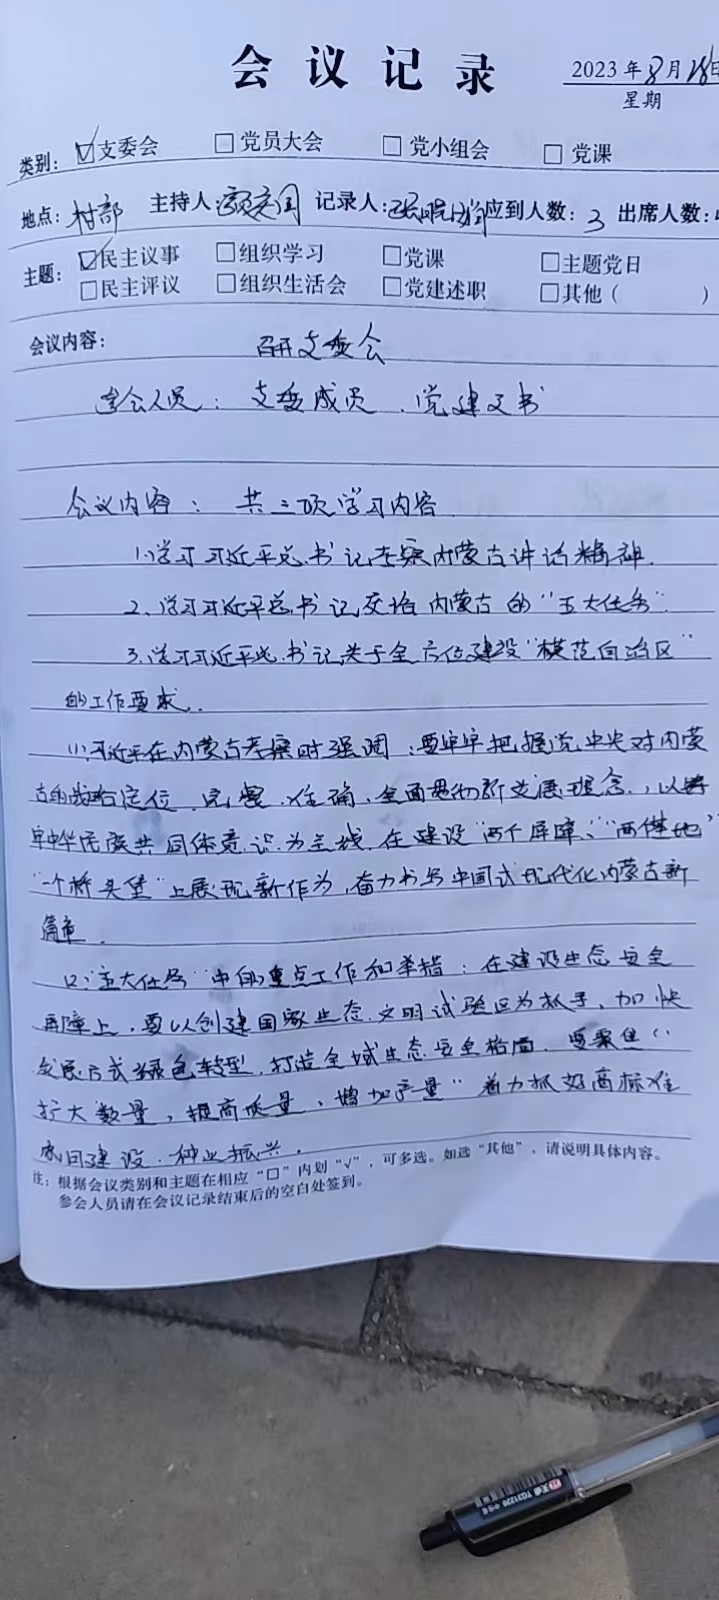 会议记录
2023年8月28日
星期
类别: ☑支委会 □党员大会 □党小组会 □党课
地点: 村部 主持人: 记录人: 应到人数: 3 出席人数:
主题: ☑民主议事 □组织学习 □党课 □主题党日
□民主评议 □组织生活会 □党建述职 □其他( )
会议内容: 召开支委会
参会人员: 支委成员、党建文书
会议内容: 共三项学习内容
1.学习习近平总书记考察内蒙古讲话精神.
2.学习习近平总书记交给内蒙古的"五大任务".
3.学习习近平总书记关于全方位建设"模范自治区"
的工作要求.
(1)习近平在内蒙古考察时强调:要牢牢把握党中央对内蒙
古的战略定位、完整、准确、全面贯彻新发展理念,以铸
牢中华民族共同体意识为主线,在建设"两个屏障"、"两个基地"
"一个桥头堡"上展现新作为,奋力书写中国式现代化内蒙古新
篇章.
(2)"五大任务"中的重点工作和举措:在建设生态安全
屏障上,要以创建国家生态文明试验区为抓手,加快
发展方式绿色转型,打造全域生态安全格局.要聚焦"
扩大数量,提高质量,增加产量"着力抓好高标准
农田建设、种业振兴.
注:根据会议类别和主题在相应"□"内划"√",可多选。如选"其他",请说明具体内容。
参会人员请在会议记录结束后的空白处签到。
TG31220